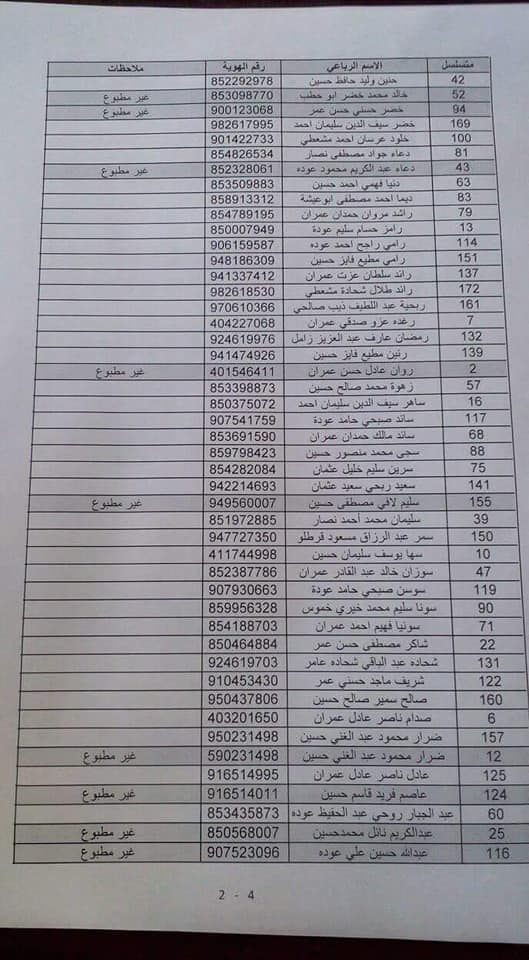 متسلسل الاسم الرباعي رقم الهوية ملاحظات
42 حنين وليد حافظ حسين 852292978
52 خالد محمد خضر ابو حطب 853098770 غير مطبوع
94 خضر حسني حسن عمر 900123068 غير مطبوع
169 خضر سيف الدين سليمان احمد 982617995
100 خلود عرسان احمد مشعطي 901422733
81 دعاء جواد مصطفى نصار 854826534
43 دعاء عبد الكريم محمود عوده 852328061 غير مطبوع
63 دنيا فهمي احمد حسين 853509883
83 ديما احمد مصطفى ابوعيشة 858913312
79 راشد مروان حمدان عمران 854789195
13 رامز حسام سليم عودة 850007949
114 رامي راجح احمد عوده 906159587
151 رامي مطيع فايز حسين 948186309
137 رائد سلطان عزت عمران 941337412
172 رائد طلال شحادة مشعطي 982618530
161 ربحية عبد اللطيف ذيب صالحي 970610366
7 رغده عزو صدقي عمران 404227068
132 رمضان عارف عبد العزيز زامل 924619976
139 رنين مطيع فايز حسين 941474926
2 روان عادل حسن عمران 401546411 غير مطبوع
57 زهوة محمد صالح حسين 853398873
16 ساهر سيف الدين سليمان احمد 850375072
117 سائد صبحي حامد عودة 907541759
68 سائد مالك حمدان عمران 853691590
88 سجى محمد منصور حسين 859798423
75 سرين سليم خليل عثمان 854282084
141 سعيد ربحي سعيد عثمان 942214693
155 سليم لافي مصطفى حسين 949560007 غير مطبوع
39 سليمان محمد أحمد نصار 851972885
150 سمر عبد الرزاق مسعود قرطلو 947727350
10 سها يوسف سليمان حسين 411744998
47 سوزان خالد عبد القادر عمران 852387786
119 سوسن صبحي حامد عودة 907930663
90 سونا سليم محمد خيري خموس 859956328
71 سونيا فهيم احمد عمران 854188703
22 شاكر مصطفى حسن عمر 850464884
131 شحاده عبد الباقي شحاده عامر 924619703
122 شريف ماجد حسني عمر 910453430
160 صالح سمير صالح حسين 950437806
6 صدام ناصر عادل عمران 403201650
157 ضرار محمود عبد الغني حسين 950231498
12 ضرار محمود عبد الغني حسين 590231498 غير مطبوع
125 عادل ناصر عادل عمران 916514995
124 عاصم فريد قاسم حسين 916514011 غير مطبوع
60 عبد الجبار روحي عبد الحفيظ عوده 853435873
25 عبدالكريم نائل محمدحسين 850568007 غير مطبوع
116 عبدالله حسين علي عوده 907523096 غير مطبوع
2 - 4